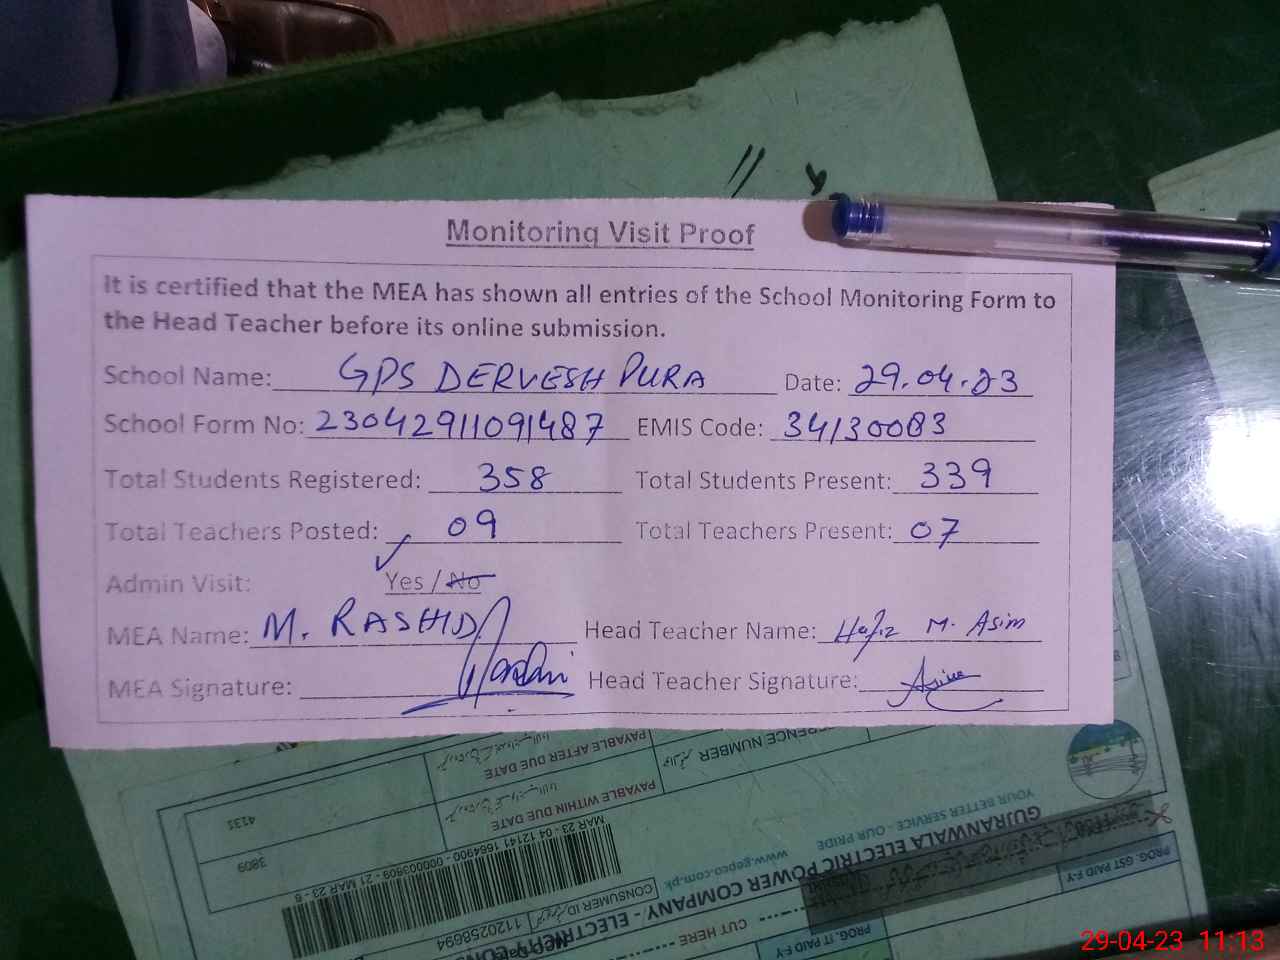 Monitoring Visit Proof
It is certified that the MEA has shown all entries of the School Monitoring Form to
the Head Teacher before its online submission.
School Name: GPS DERVESH PURA Date: 29.04.23
School Form No: 23042911091487 EMIS Code: 34130083
Total Students Registered: 358 Total Students Present: 339
Total Teachers Posted: 09 Total Teachers Present: 07
Admin Visit: Yes / No
MEA Name: M. RASHID Head Teacher Name: Hafiz M. Asim
MEA Signature: Head Teacher Signature: Asim
PAYABLE AFTER DUE DATE
PAYABLE WITHIN DUE DATE
4131
3809
MAR 23 - 04 12141 1664900 - 00003809 - 21 MAR 23 - 8
CONSUMER ID 1120258694
www.gepco.com.pk
GUJRANWALA ELECTRIC POWER COMPANY - ELECTRICITY
YOUR BETTER SERVICE - OUR PRIDE
CUT HERE
PROG. GST PAID F-Y
PROG. IT PAID F-Y
29-04-23 11:13